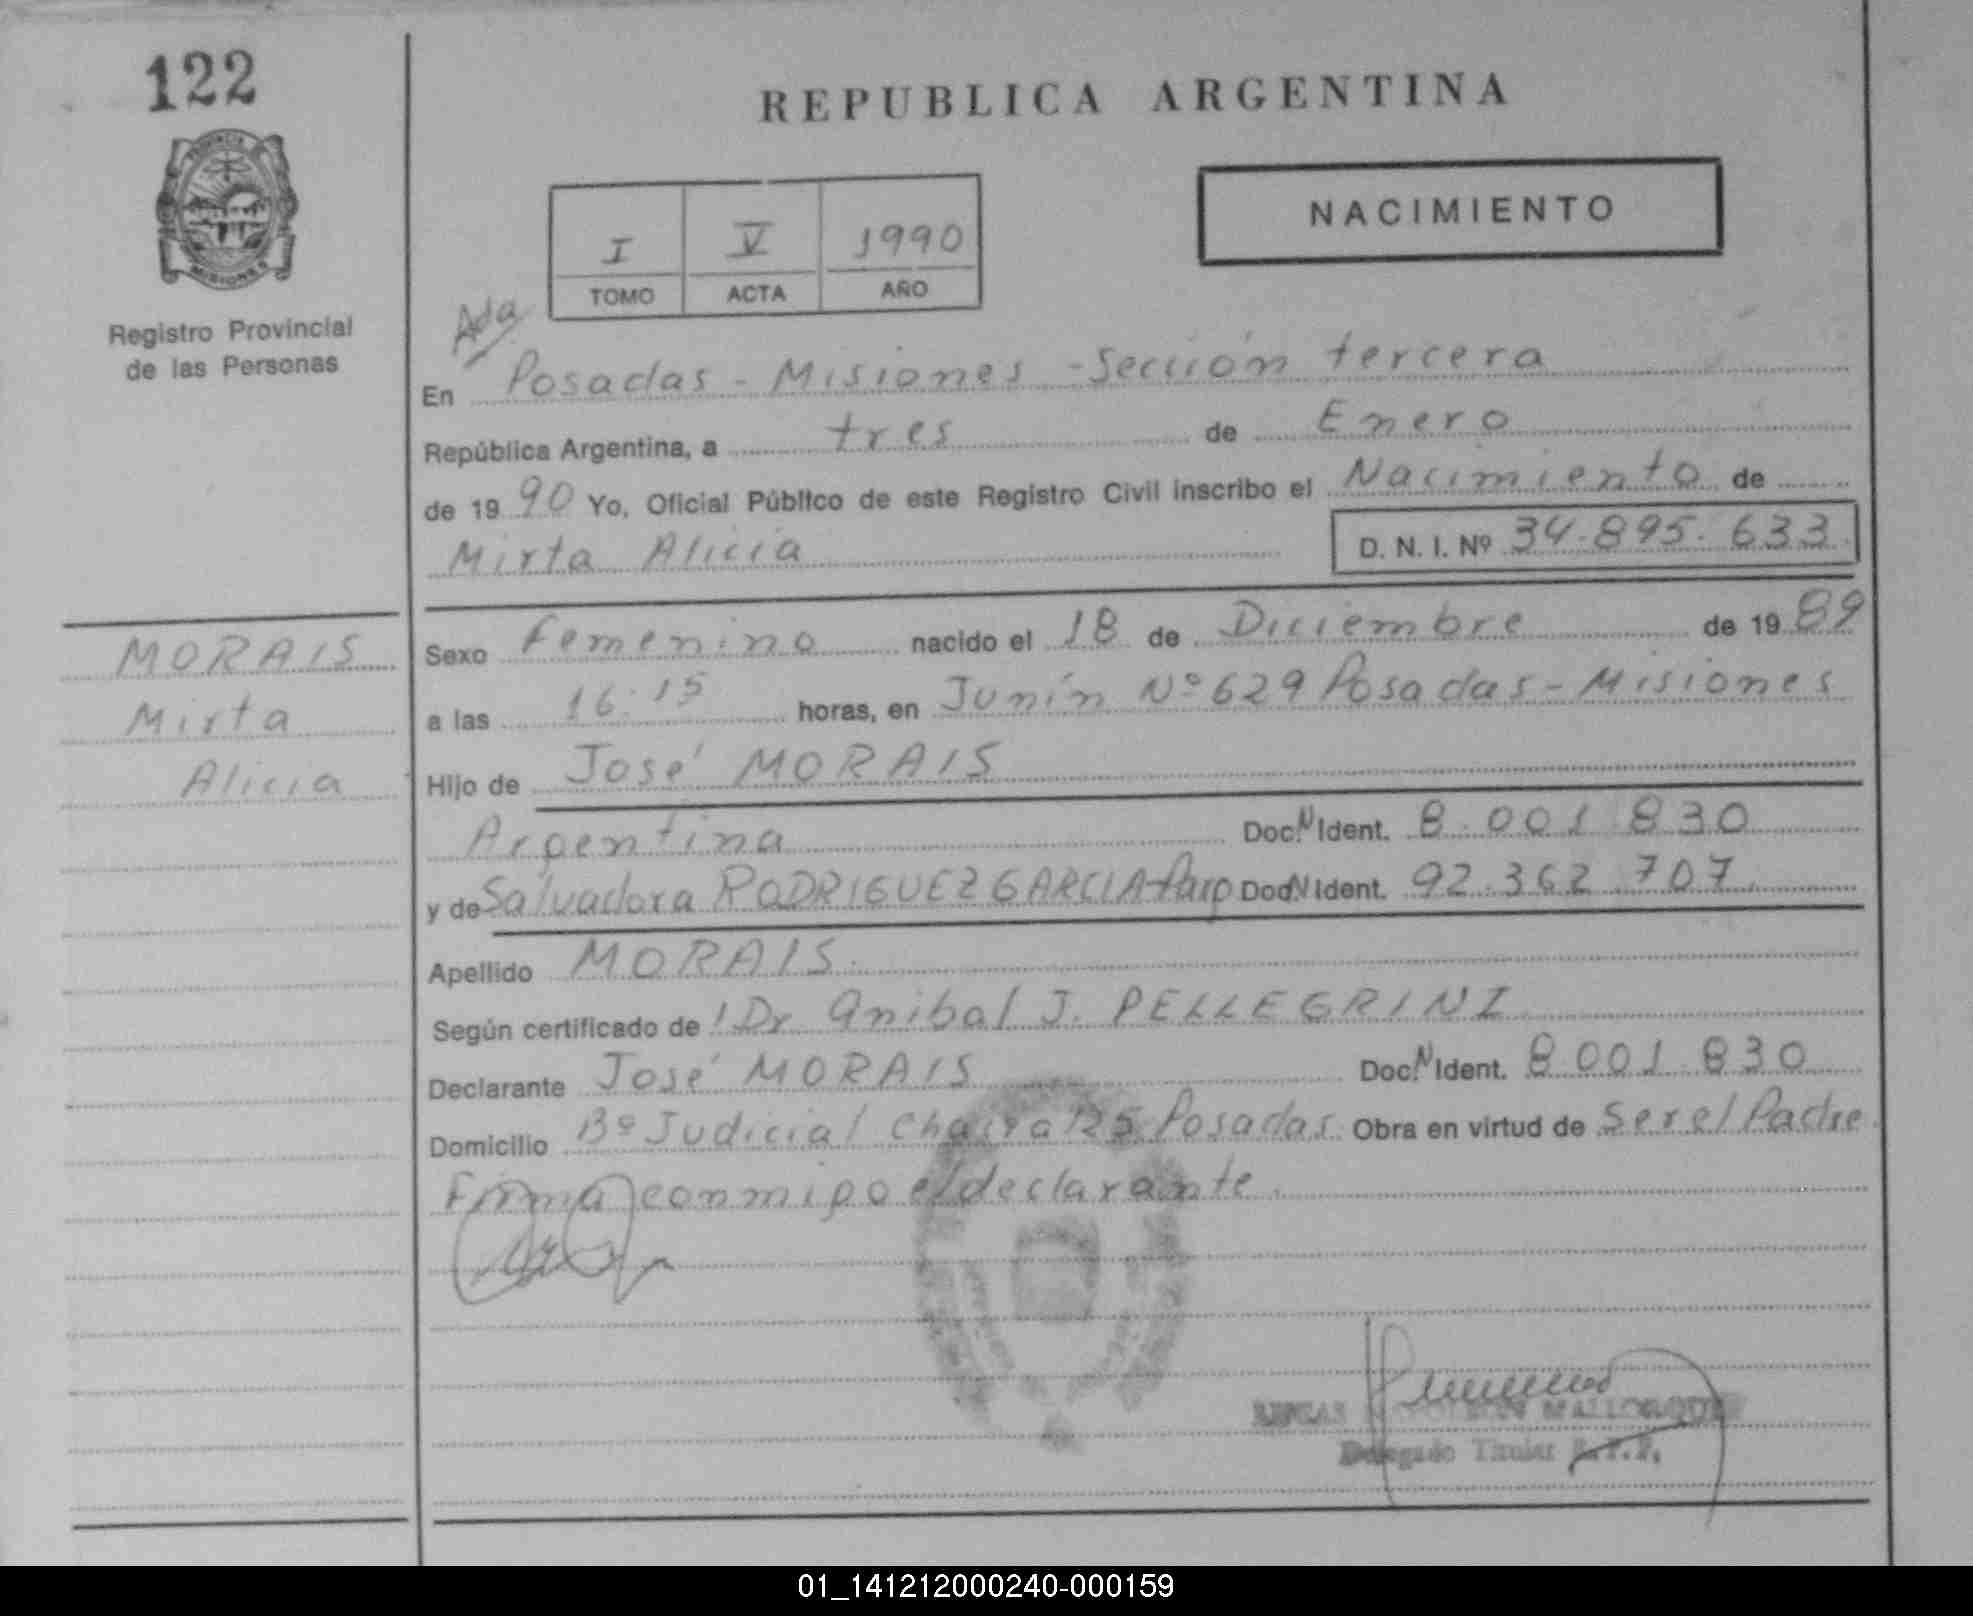 122
PROVINCIA
MISIONES
Registro Provincial
de las Personas
REPUBLICA ARGENTINA
I V 1990
TOMO ACTA AÑO
NACIMIENTO
Ada
En Posadas - Misiones - Sección tercera
República Argentina, a tres de Enero
de 1990 Yo, Oficial Público de este Registro Civil inscribo el Nacimiento de
Mirta Alicia D. N. I. Nº 34.895.633
MORAIS
Mirta
Alicia
Sexo Femenino nacido el 18 de Diciembre de 1989
a las 16:15 horas, en Junín Nº 629 Posadas - Misiones
Hijo de José MORAIS
Argentina Doc. N Ident. 8.001.830
y de Salvadora RODRIGUEZ GARCIA Doc. N Ident. 92.362.707
Apellido MORAIS.
Según certificado de Dr Anibal J. PELLEGRINI
Declarante José MORAIS Doc. N Ident. 8.001.830
Domicilio Bº Judicial Chacra 125 Posadas Obra en virtud de Ser el Padre.
Firma conmigo el declarante.
MALLORQUIN
Delegado Titular
01_141212000240-000159